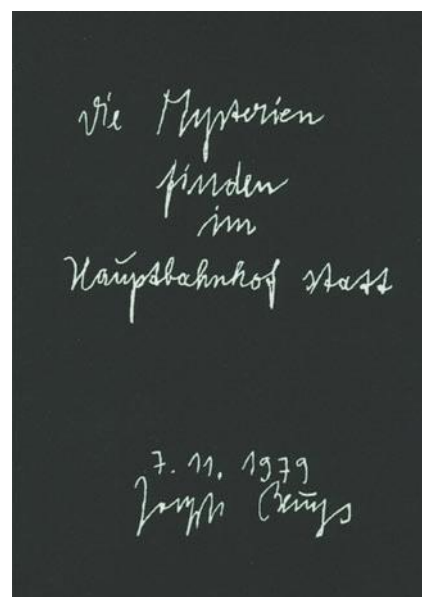 die Mysterien
finden
im
Hauptbahnhof statt
7. 11. 1979
Joseph Beuys